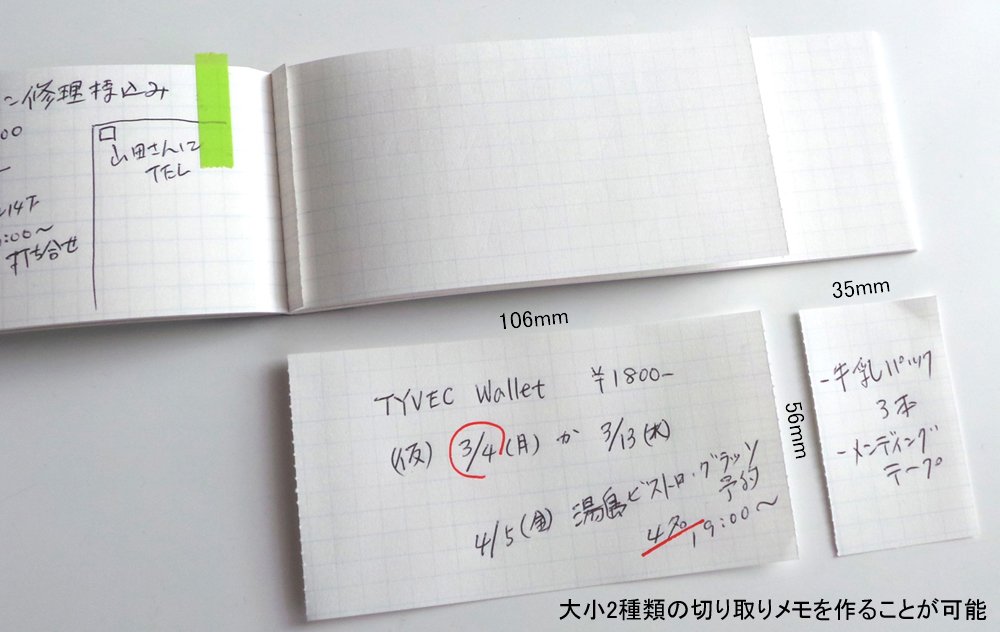 ン修理持込み
00
山田さんに
TEL
14下
:00〜
打ち合せ
106mm
35mm
56mm
TYVEC Wallet ¥1800-
(仮) 3/4(月) か 3/13(水)
4/5(金) 湯島ビストロ・グラッソ
予約
4名 19:00〜
-牛乳パック
3本
-メンディング
テープ
大小2種類の切り取りメモを作ることが可能